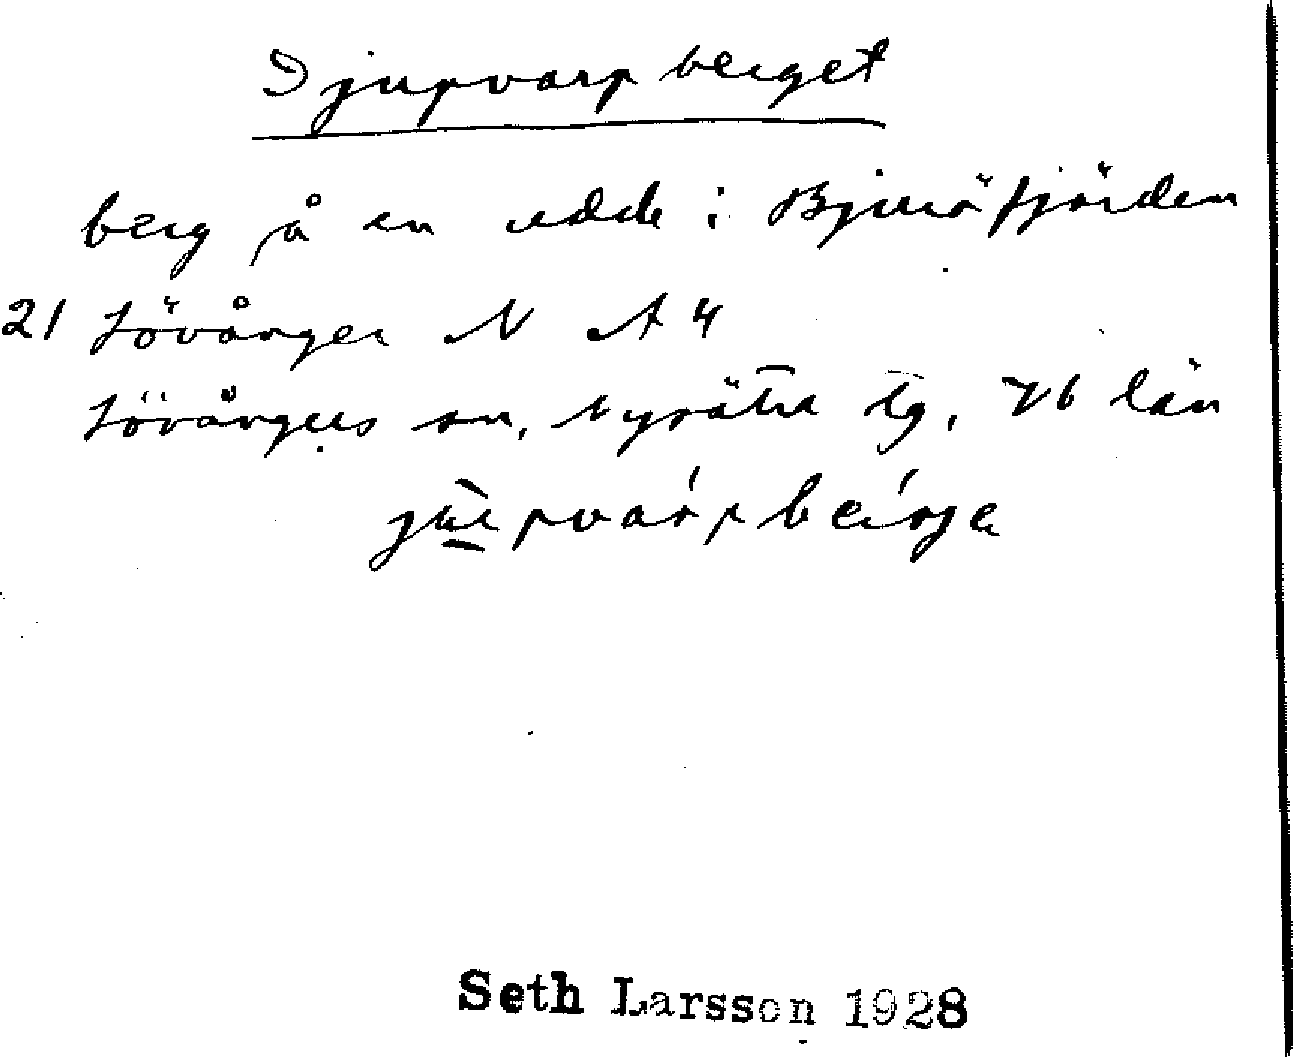 Djupvarpberget
berg på en udde i Bjuröfjärden
21 Lövånger N A 4
Lövångers sn, Nysätra tg, Vb län
Seth Larsson 1928